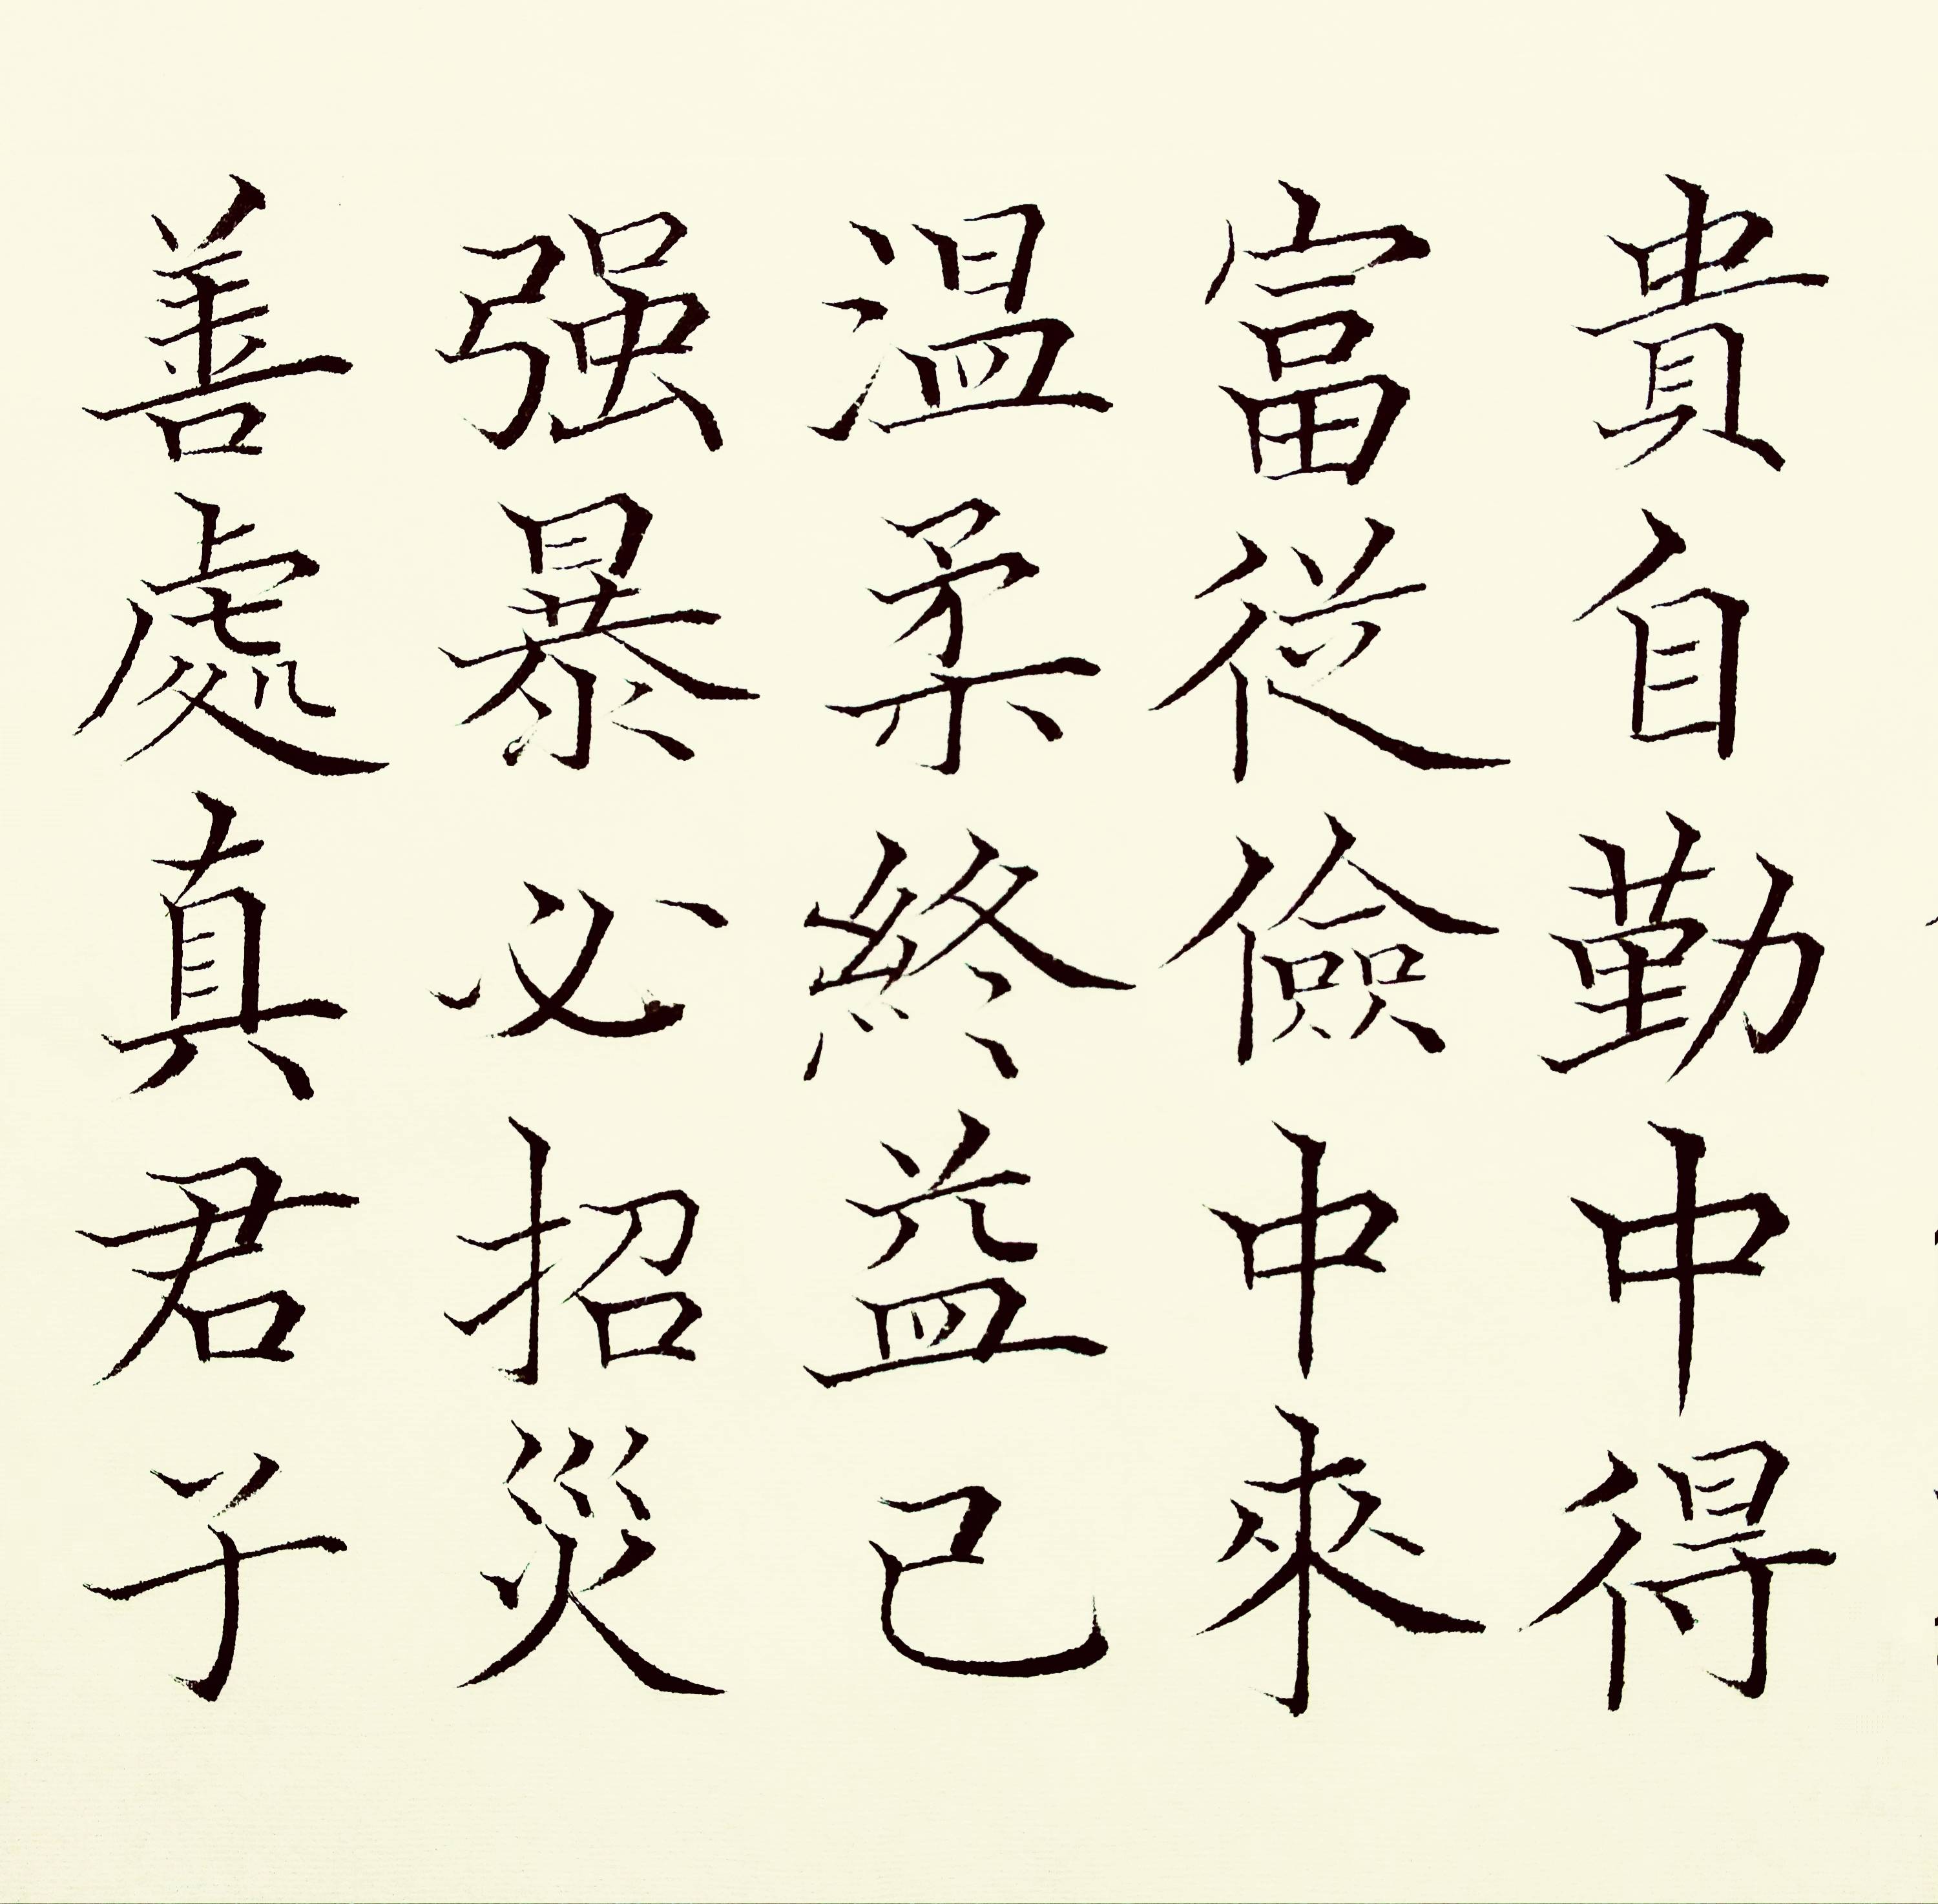 貴自勤中得
富従儉中來
温柔終益己
强暴必招災
善處真君子